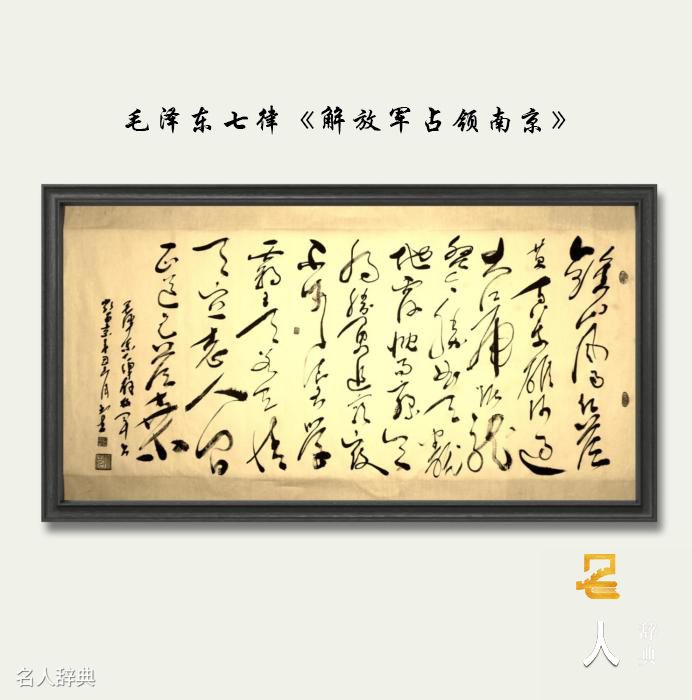 毛泽东七律《解放军占领南京》
鍾山風雨起蒼
黄百万雄师过
大江虎踞龙
盤今胜昔天翻
地覆慨而慷宜
将剩勇追穷寇
不可沽名学
霸王天若有情
天亦老人间
正道是沧桑
名
人
辞典
名人辞典